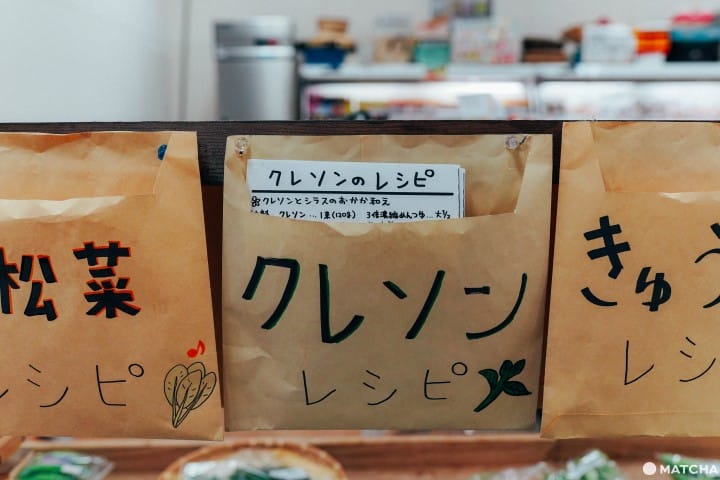 松菜
レシピ
クレソンのレシピ
クレソンとシラスのおかか和え
クレソン…1束(120g) 3倍濃縮めんつゆ…大1/2
クレソン
レシピ
きゅう
レシ
MATCHA